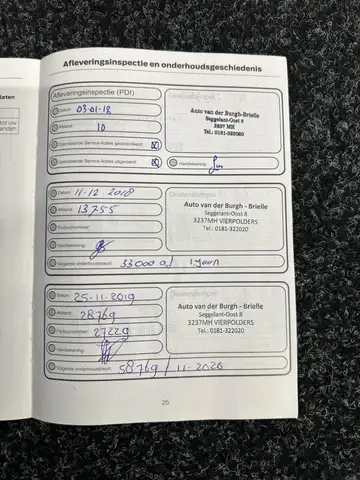 Afleveringsinspectie en onderhoudsgeschiedenis
Afleveringsinspectie (PDI)
Datum: 03-01-18
Afstand: 10
Openstaande Service-Acties gecontroleerd:
Openstaande Service-Acties uitgevoerd:
Handtekening:
Auto van der Burgh-Brielle
Seggelant-Oost 8
3237 MH
Tel.: 0181-322020
Datum: 11-12 2018
Afstand: 13755
Factuurnummer:
Handtekening:
Volgende onderhoudsbeurt: 33000 of 1 jaar
Auto van der Burgh - Brielle
Seggelant-Oost 8
3237MH VIERPOLDERS
Tel.: 0181-322020
Datum: 25-11-2019
Afstand: 28769
Factuurnummer: 27229
Handtekening:
Volgende onderhoudsbeurt: 58769 / 11-2020
Auto van der Burgh - Brielle
Seggelant-Oost 8
3237MH VIERPOLDERS
Tel.: 0181-322020
25